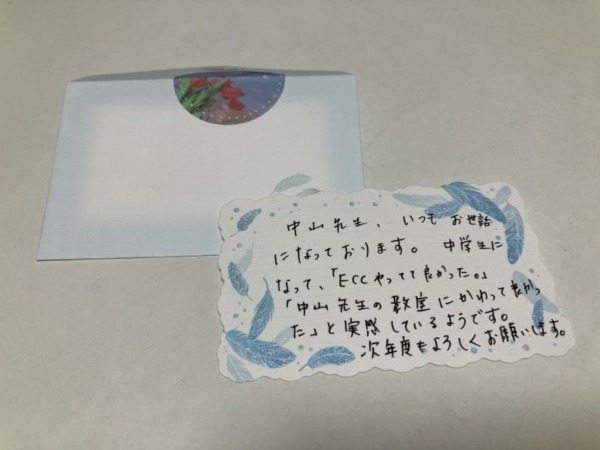 中山先生、いつもお世話
になっております。 中学生に
なって、「ECCやってて良かった。」
「中山先生の教室にかわって良かっ
た」と実感しているようです。
次年度もよろしくお願いします。